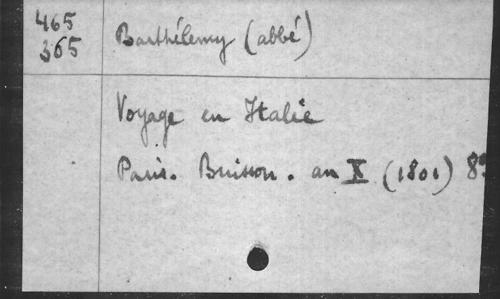 465
365
Barthélemy (abbé)
Voyage en Italie
Paris. Buisson. an X (1801) 8°